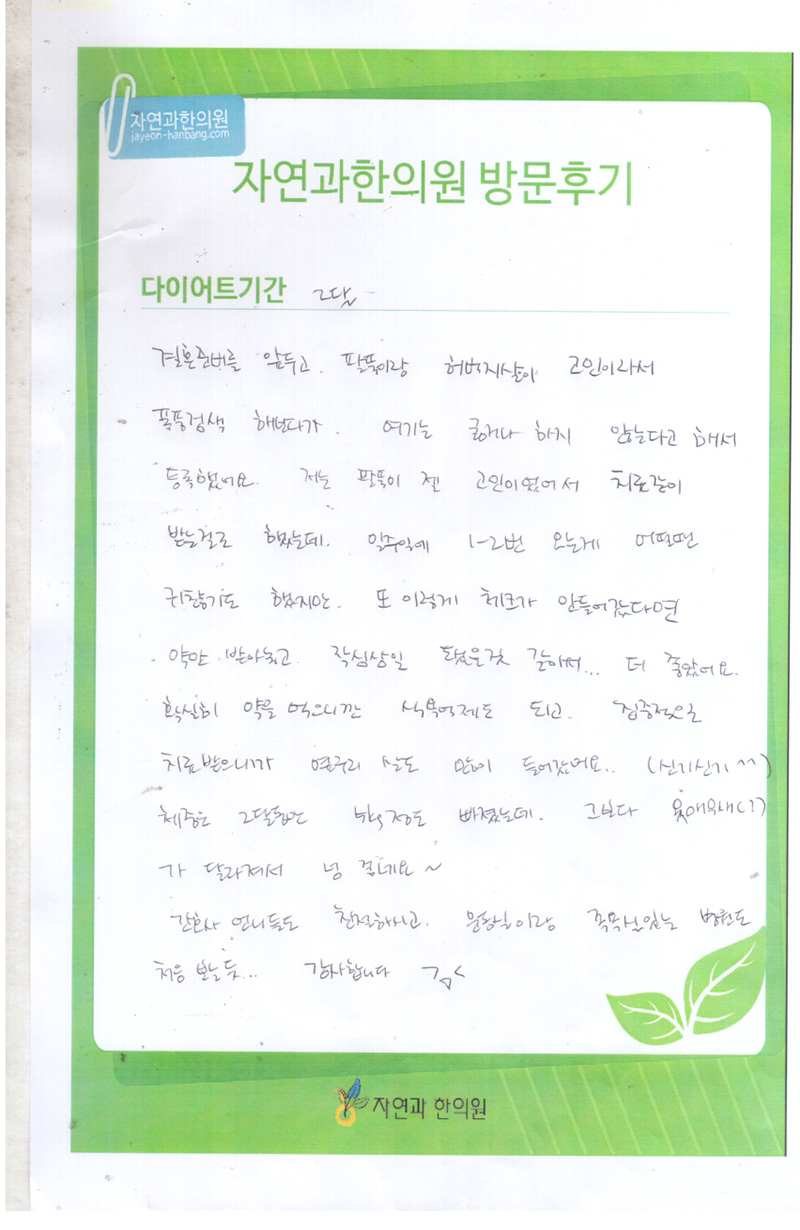 자연과한의원
jayeon-hanbang.com
자연과한의원 방문후기
다이어트기간 2달
결혼준비를 앞두고. 팔뚝이랑 허벅지살이 고민이라서
폭풍검색 해보다가. 여기는 굶거나 하지 않는다고 해서
등록했어요. 저는 팔뚝이 젤 고민이였어서 치료같이
받는걸로 했는데. 일주일에 1-2번 오는게 어쩔땐
귀찮기도 했지만. 또 이렇게 체크가 안들어갔다면
약만 받아놓고 작심삼일 됐을것 같아서... 더 좋았어요.
확실히 약을 먹으니깐 식욕억제도 되고. 집중적으로
치료받으니까 옆구리 살도 많이 들어갔어요.. (신기신기^^)
체중은 2달동안 정도 빠졌는데. 그보다 옷매무새(?)
가 달라져서 넘 좋네요~
간호사 언니들도 친절하시고. 족욕실있는 병원도
처음 보는듯... 감사합니다
자연과 한의원